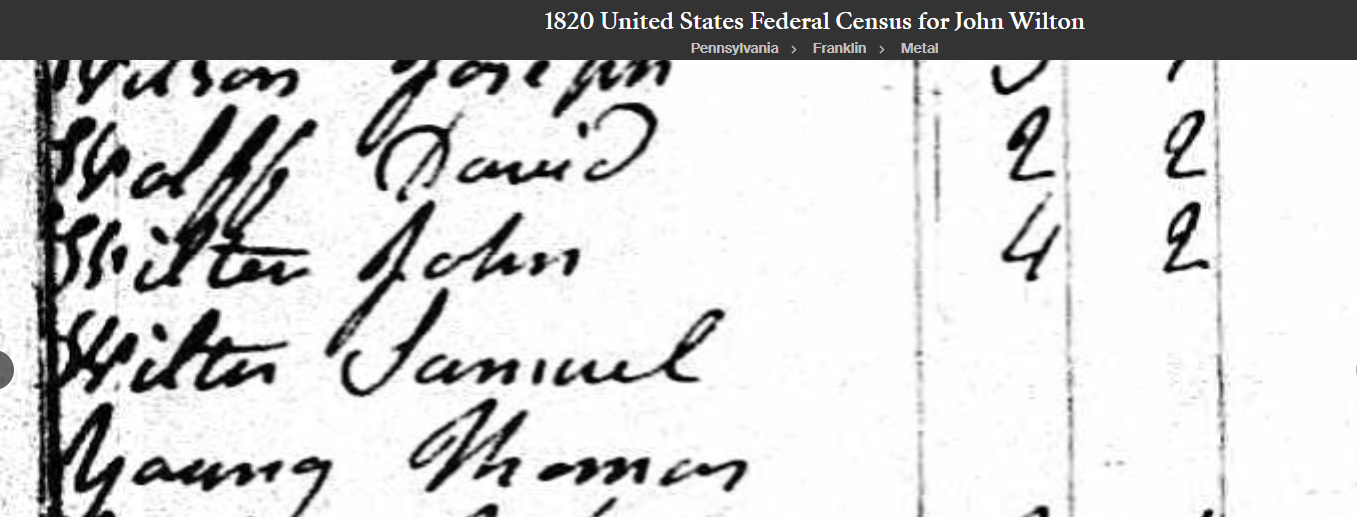 1820 United States Federal Census for John Wilton
Pennsylvania > Franklin > Metal
Wilson Joseph
Wolff David 2 2
Wilter John 4 2
Wilter Samuel
Young Thomas